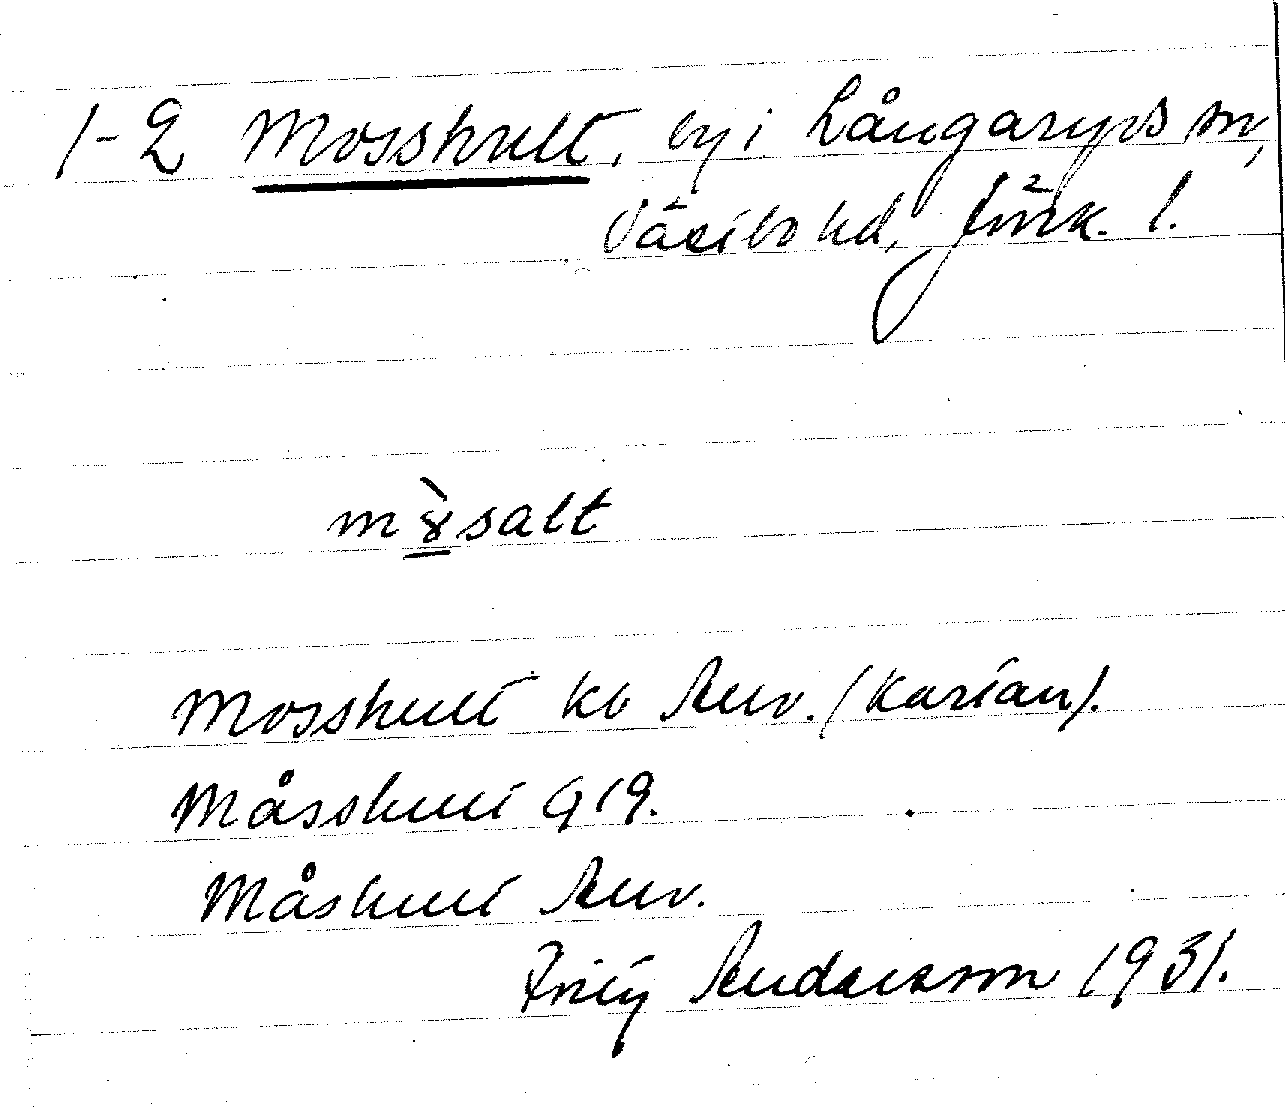 1-2 Mosshult, by i Långaryds sn,
Västbo hd, Jönk. l.
mòsalt
Mosshult kb Anv. (Kartan).
Måsshult G 19.
Måshult Anv.
Fritz Andersson 1931.